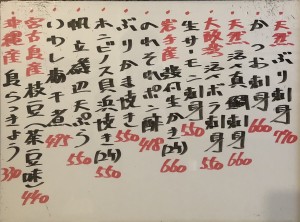 天然 ぶり刺身 770
かつお刺身 660
天然 活〆真鯛刺身 660
大阪産 活〆ボラ刺身 550
生サーモン刺身 550
岩手産 殻付生かき(2ケ) 660
のれそれポン酢 418
ぶりかま焼き 550
ホンビノス貝浜焼き(2ケ) 550
帆立磯辺天ぷら 550
いわし梅干煮 495
宮古島産 枝豆(茶豆味) 440
沖縄産 島らっきょう 330